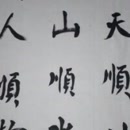 天順
山順
人順